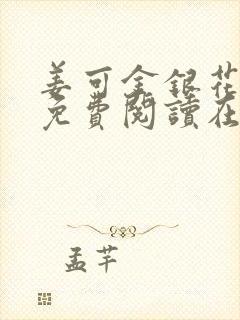 姜可金銀花
免費閱讀在
孟芊